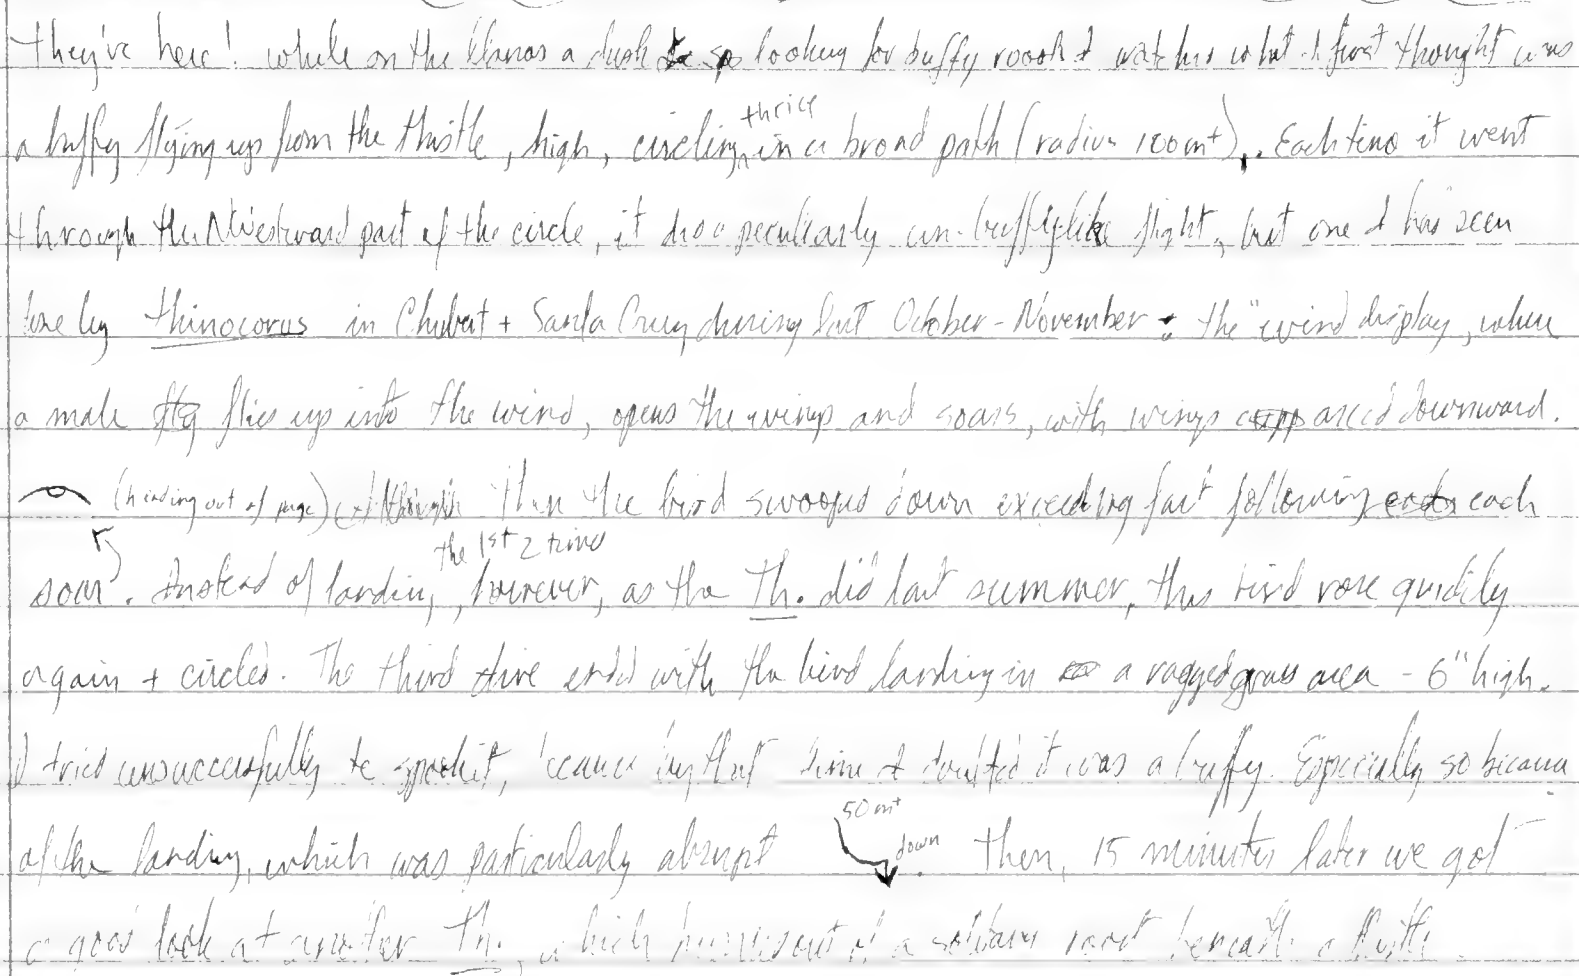 they're here! while on the llanos a dusk looking for buffy roosts I watched what I first thought was
thrice
a buffy flying up from the thistle, high, circling in a broad path (radius 100 m+). Each time it went
through the NWestward part of the circle, it did a peculiarly un-buffylike flight, but one I had seen
done by Thinocorus in Chubut + Santa Cruz during last October-November: the "wind display, when
a male flies up into the wind, opens the wings and soars, with wings arced downward.
(heading out of page) Then the bird swooped down exceeding fast following each
the 1st 2 times
soar. Instead of landing, however, as the Th. did last summer, this bird rose quickly
again + circled. The third dive ended with the bird landing in a ragged grass area - 6" high.
I tried unsuccessfully to spook it, because by that time I doubted it was a buffy. Especially so because
50 m+
of the landing, which was particularly abrupt down. Then, 15 minutes later we got
a good look at another Th., which out of a solitary roost beneath a thistle